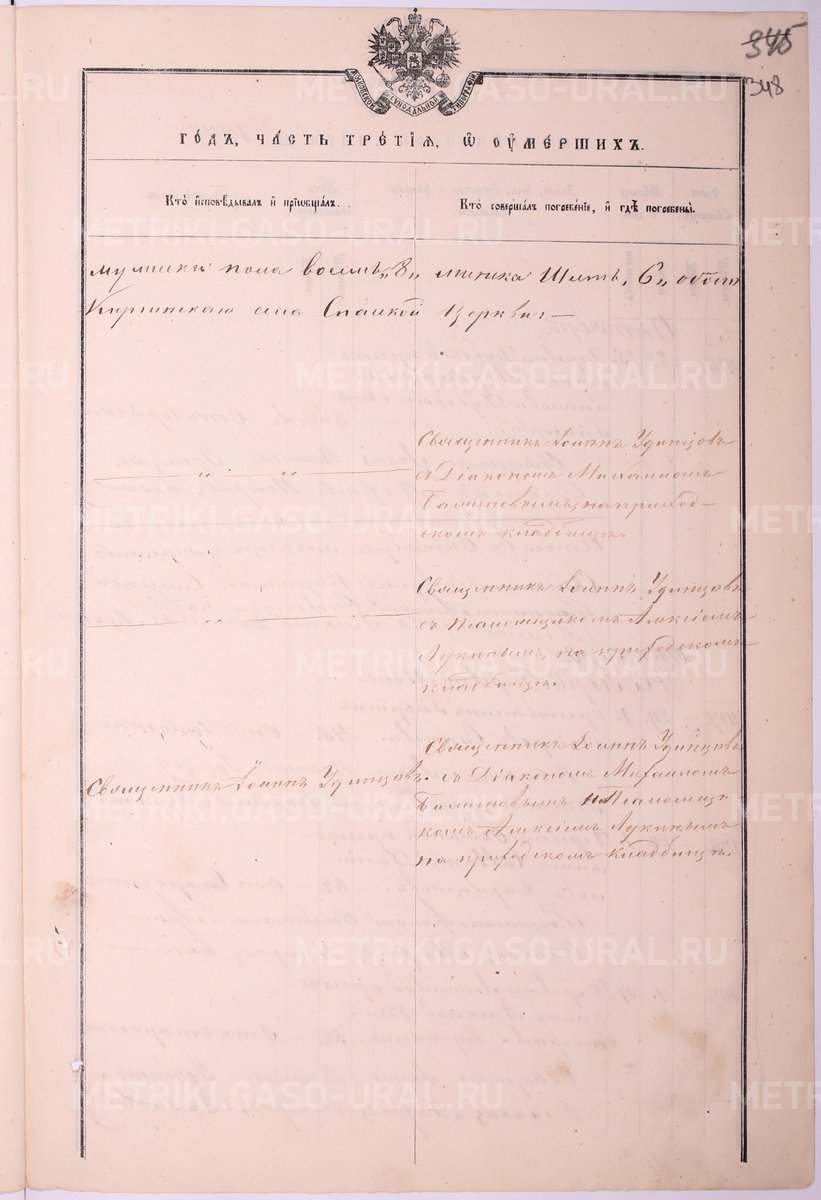 345
348
МОСКОВСКОЙ СѴНОДАЛЬНОЙ ТИПОГРАФІИ
ГО́ДЪ, ЧА́СТЬ ТРЕ́ТІѦ, Ѡ҆ ОУ҆МЕ́РШИХЪ.
Кто̀ и҆сповѣ́дывалъ и҆ прїѡбща́лъ.
Кто̀ соверша́лъ погребе́нїе, и҆ гдѣ̀ погребены̀.
мужеска пола восемь "8" женска Шесть, 6 "
Киргинскаго села Спаской Церкви: —
Священникъ Іоаннъ Удинцовъ
съ Діакономъ Михаиломъ
на приход-
скомъ кладбищѣ.
Священникъ Іоаннъ Удинцовъ
съ Псаломщикомъ Алексіемъ
Лукинымъ, на приходскомъ
кладбищѣ.
Священникъ Іоаннъ Удинцовъ.
Священникъ Іоаннъ Удинцовъ
съ Діакономъ Михаиломъ
и Псаломщи-
комъ Алексіемъ Лукинымъ
на приходскомъ кладбищѣ.
METRIKI.GASO-URAL.RU